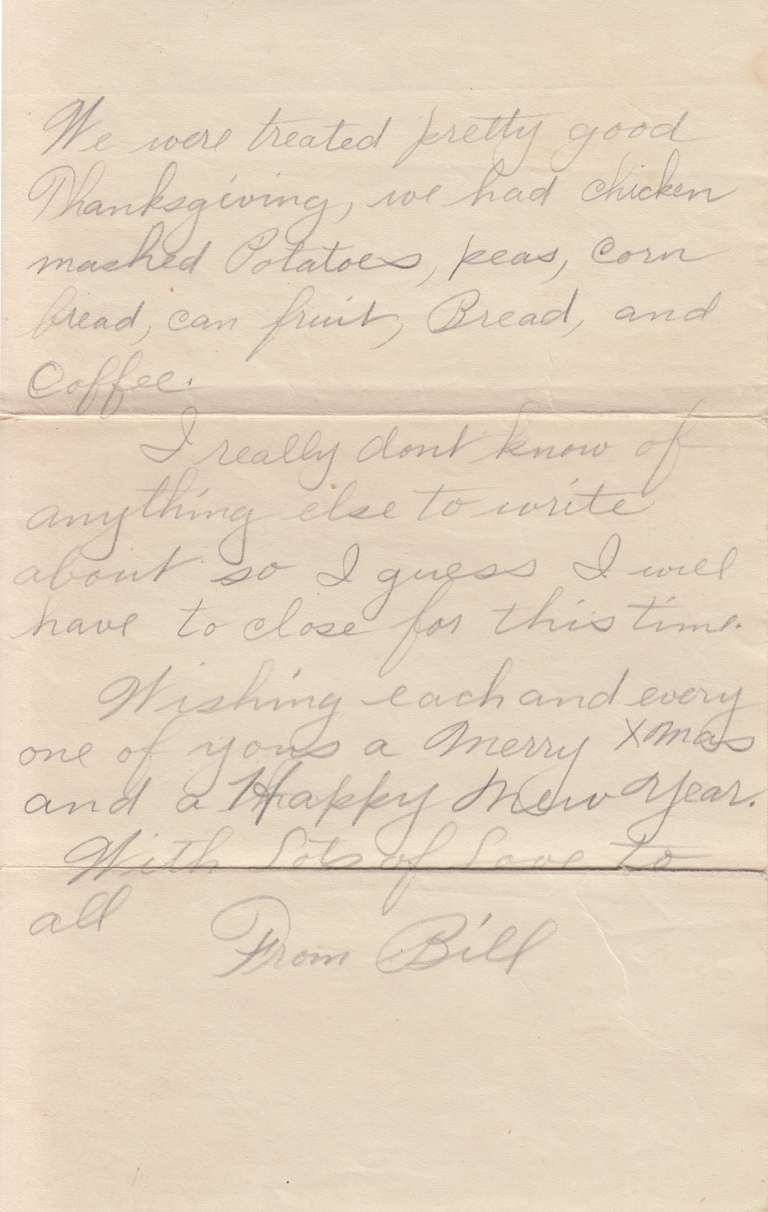 We were treated pretty good
Thanksgiving, we had chicken
mashed Potatoes, peas, corn
bread, can fruit, Bread, and
Coffee.
I really dont know of
anything else to write
about so I guess I will
have to close for this time.
Wishing each and every
one of yous a Merry Xmas
and a Happy New Year.
With Lots of Love to
all
From Bill